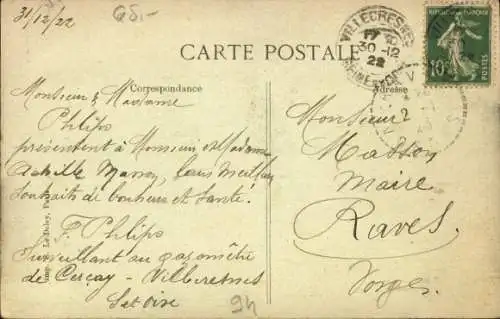 31/12/22
CARTE POSTALE
Correspondance
Adresse
VILLECRESNES
17
30-12
22
REPUBLIQUE FRANÇAISE
10c
POSTES
Monsieur & Madame
Phlips
présentent à Monsieur et Madame
Achille Masson, leurs meilleurs
souhaits de bonheur et santé.
F. Phlips
Surveillant au gazomètre
de Cerçay - Villecresnes
Set Oise
94
Monsieur
Masson
Maire
Raves
Vosges